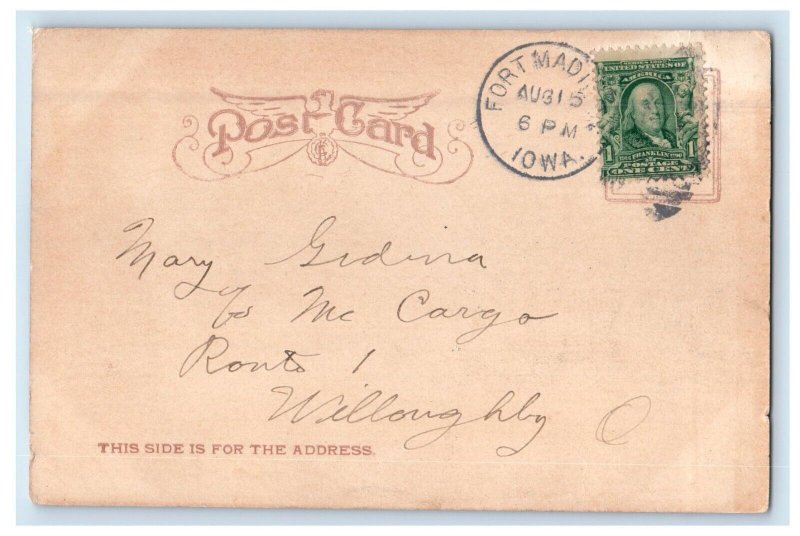 Post Card
FORT MADI
AUG 15
6 PM
IOWA.
SERIES 1902
UNITED STATES OF
AMERICA
1706 FRANKLIN 1790
1 POSTAGE 1
ONE CENT
Mary Gidina
c/o Mc Cargo
Route 1
Willoughby O
THIS SIDE IS FOR THE ADDRESS.